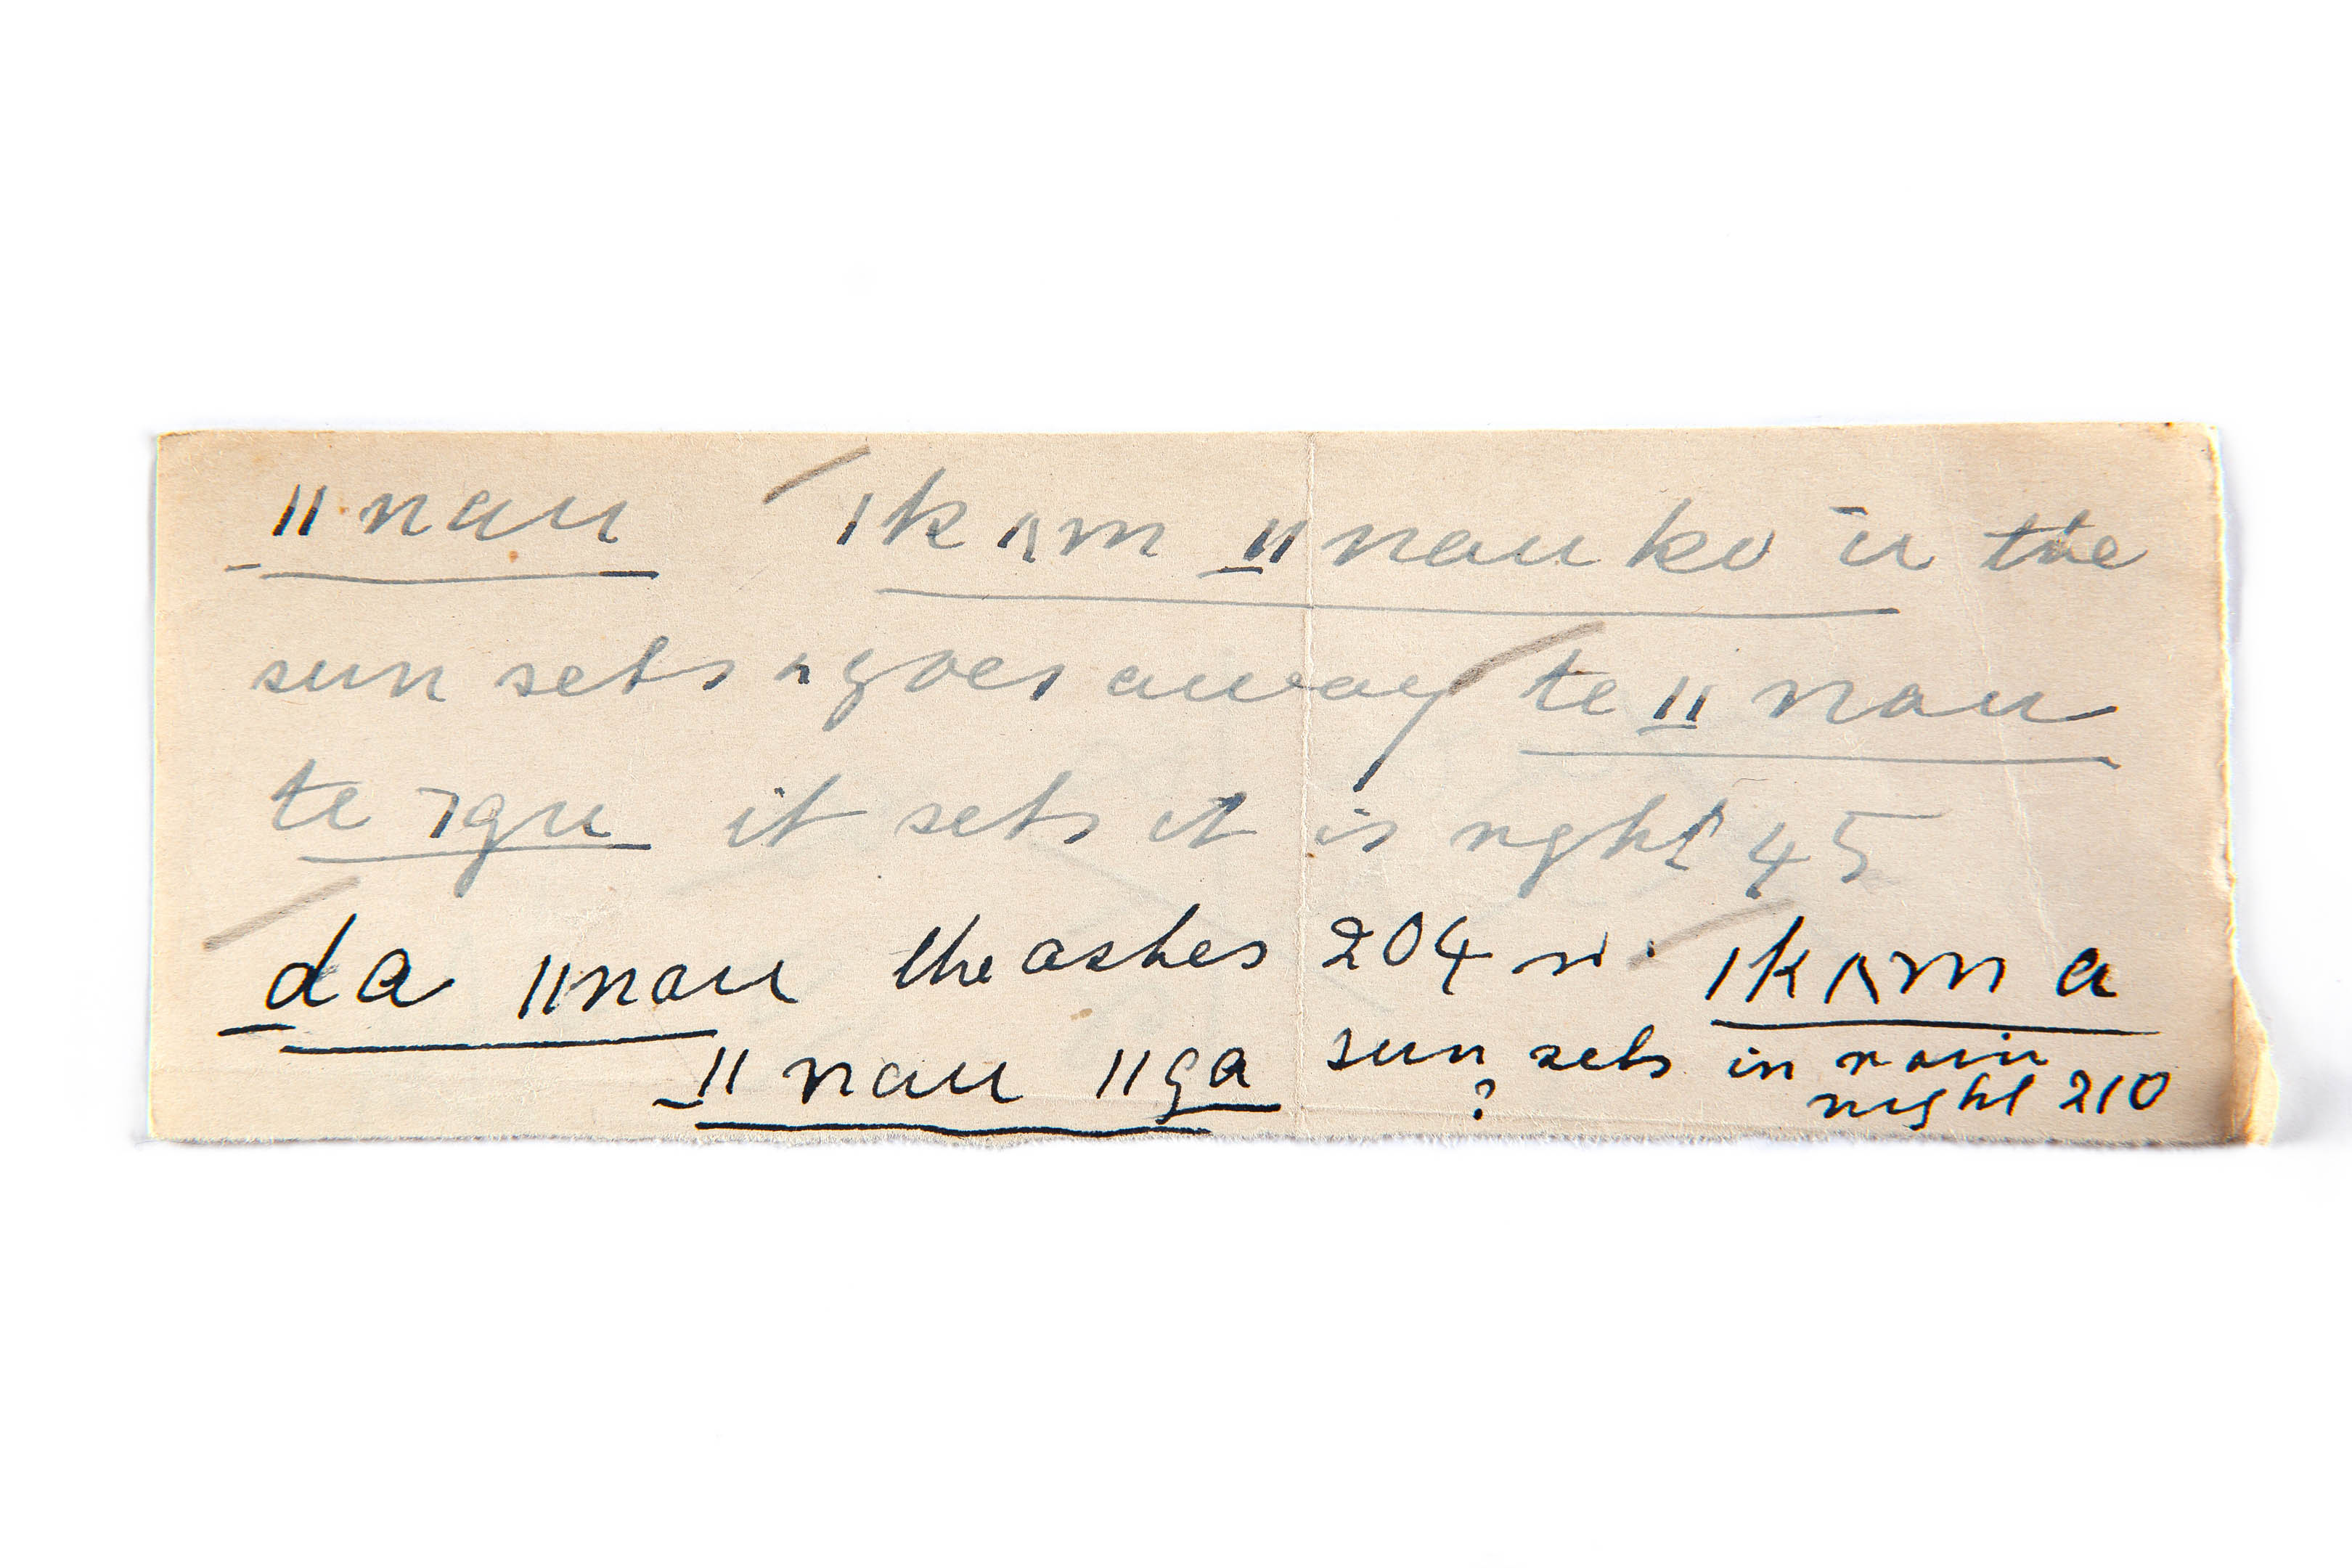 ǁnau / ǀkʌm ǁnau ko ū the
sun sets & goes away / te ǁnau
te ɿgu it sets it is night 45
/ da ǁnau the ashes 204 / ǀkʌm a
ǁnau ǁga sun sets in rain
? night 210